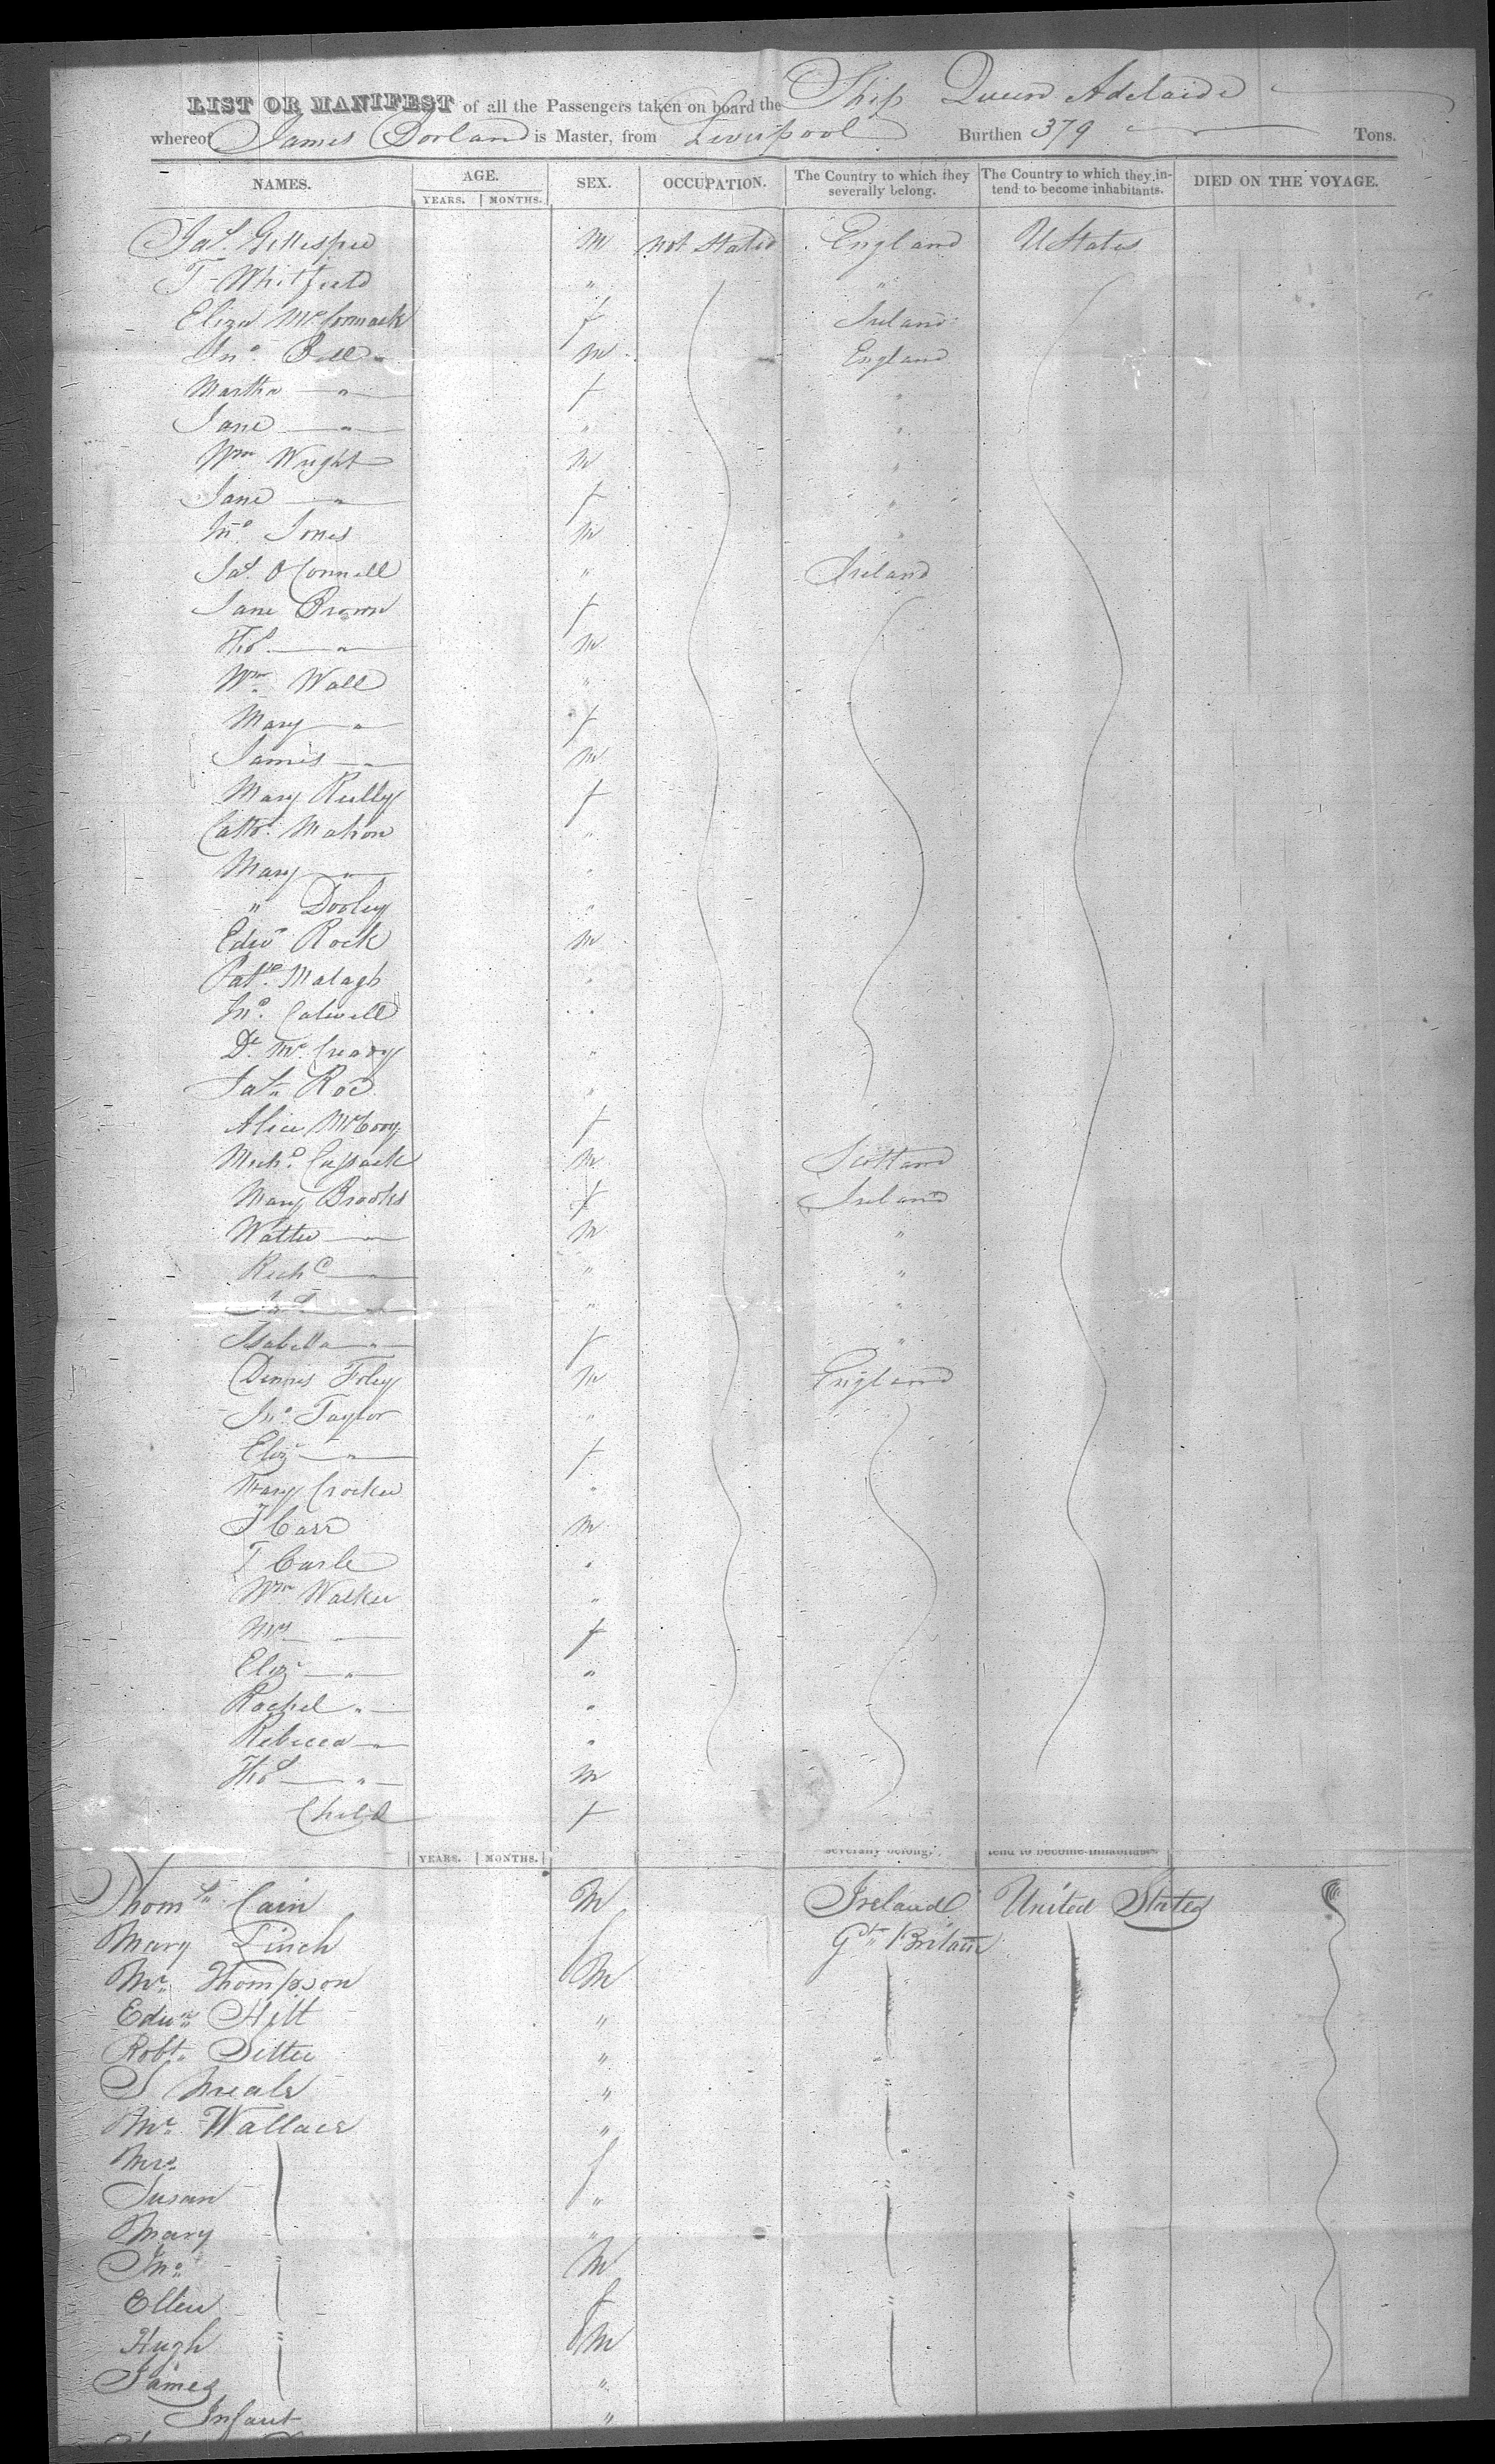 LIST OR MANIFEST of all the Passengers taken on board the Ship Queen Adelaide
whereof James Dorland is Master, from Liverpool Burthen 379 Tons.
NAMES. AGE. SEX. OCCUPATION. The Country to which they severally belong. The Country to which they intend to become inhabitants. DIED ON THE VOYAGE.
YEARS. MONTHS.
Jas. Gillespie M not Stated England U States
T Whitfield " "
Eliza McCormack f Ireland
Jno. Bell M England
Martha " f "
Jane " " "
Wm Wright M "
Jane " f "
Jno. Jones M "
Jas. O'Connell " Ireland
Jane Brown f
Thos. " M
Wm. Wall "
Mary " f
James " M
Mary Reilly f
Cath. Mahon "
Mary " "
" Dooley "
Edwd Rock M
Patk. Malagh "
Jno. Calwell "
Dl. McCready "
Jas. Roe "
Alice McCovy f
Michl. Cussack M Scotland
Mary Brooks f Ireland
Walter " M "
Richd " " "
Jas " " "
Isabella " f "
Dennis Foley M England
Jno. Taylor "
Eliz " f
Mary Crocker "
T Carr M
T Carle "
Wm Walker "
Mrs f
Eliz " "
Rachel " "
Rebecca " "
Thos " M
Child f
YEARS. MONTHS. severally belong. tend to become inhabitants.
Thoms. Cain M Ireland United States
Mary Finch f Gt. Britain
Mr. Thompson M
Edwd. Hilt "
Robt. "
S Meals " "
Mr. Wallace "
Mrs. f
Susan " " "
Mary "
Jno. " M
Ellen f "
Hugh " M
James "
Infant "